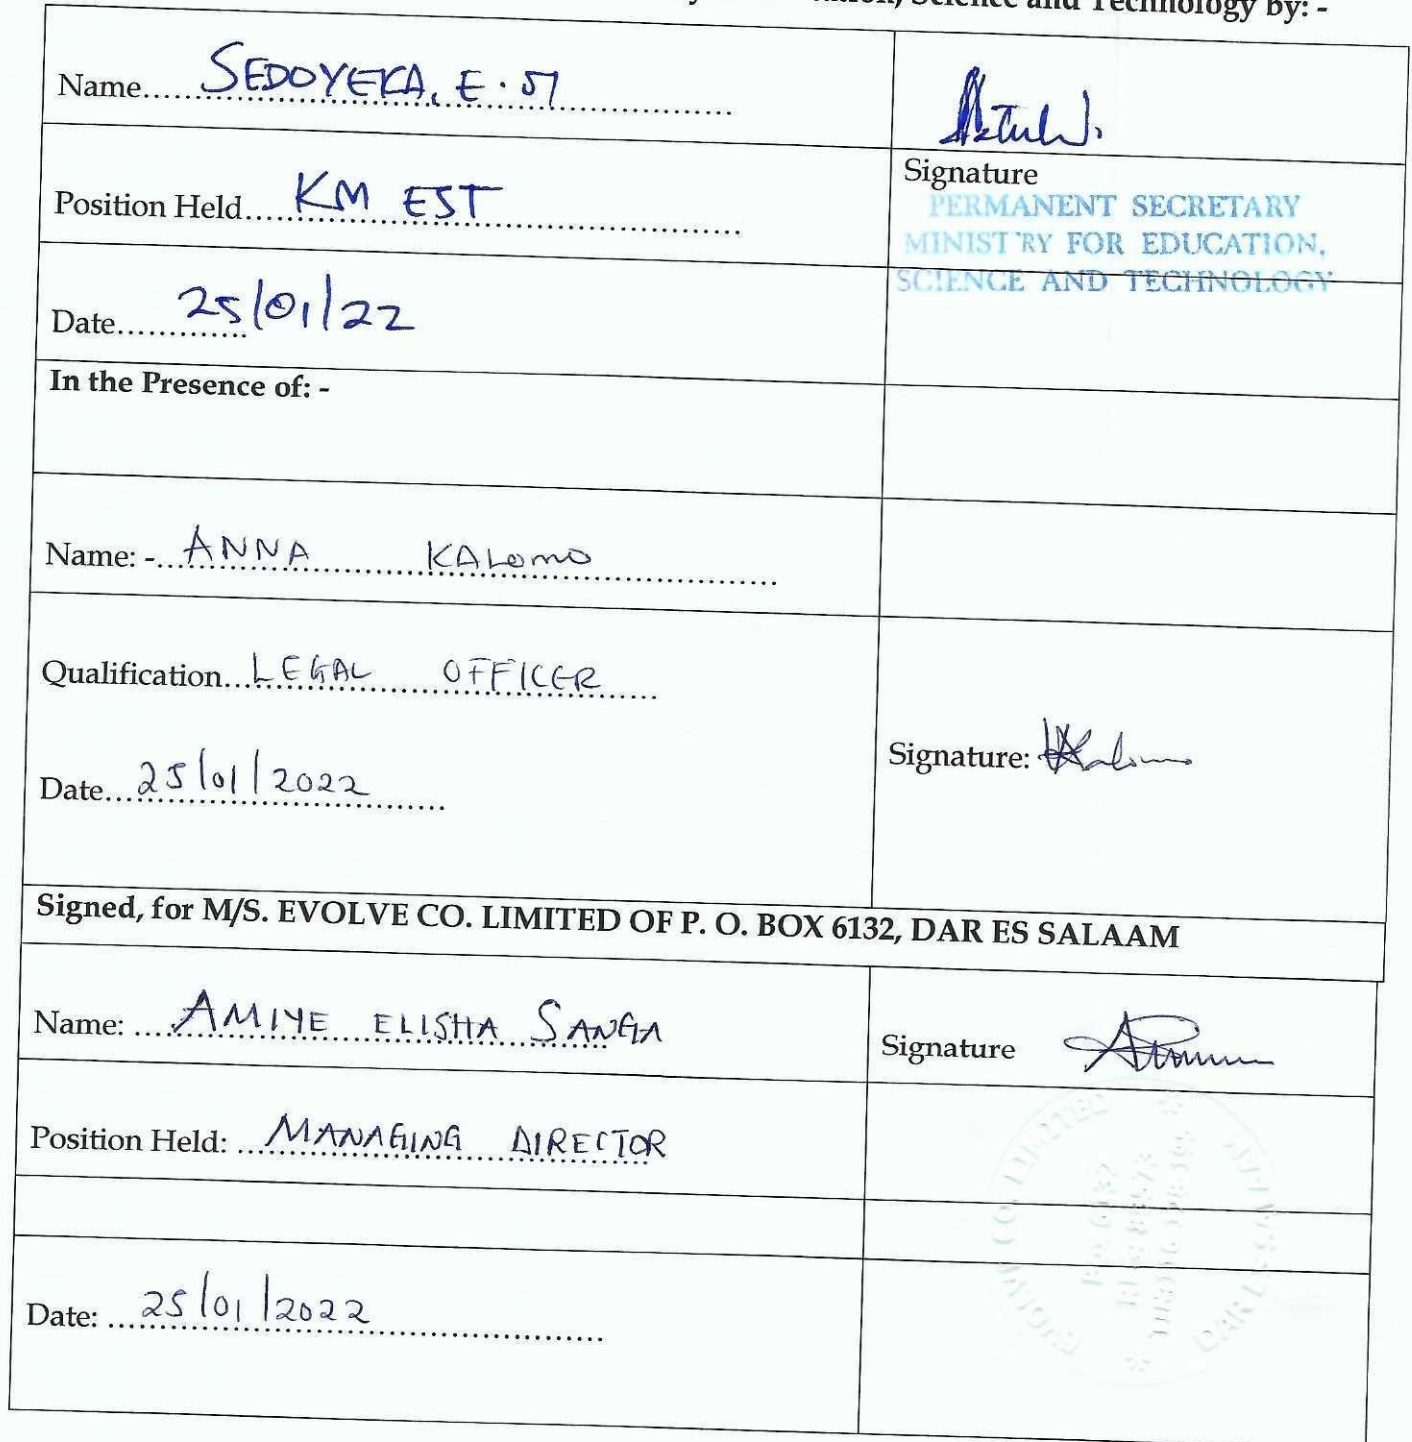 Science and Technology by: -
Name..... SEDOYEKA, E.
Position Held..... KM EST
Signature
PERMANENT SECRETARY
MINISTRY FOR EDUCATION,
SCIENCE AND TECHNOLOGY
Date..... 25/01/22
In the Presence of: -
Name: -... ANNA KALOMO
Qualification... LEGAL OFFICER
Date... 25/01/2022
Signature:
Signed, for M/S. EVOLVE CO. LIMITED OF P. O. BOX 6132, DAR ES SALAAM
Name: .... AMIYE ELISHA SANGA
Signature
Position Held: ... MANAGING DIRECTOR
Date: ... 25/01/2022
EVOLVE CO. LIMITED
DAR ES SALAAM